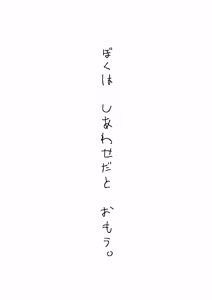 ぼくは しあわせだと おもう。